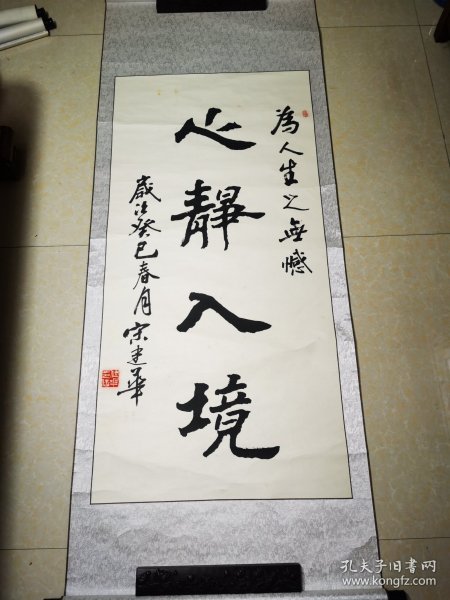 為人生之無憾
心靜入境
歲次癸巳春月宋建華
孔夫子旧书网
www.kongfz.com